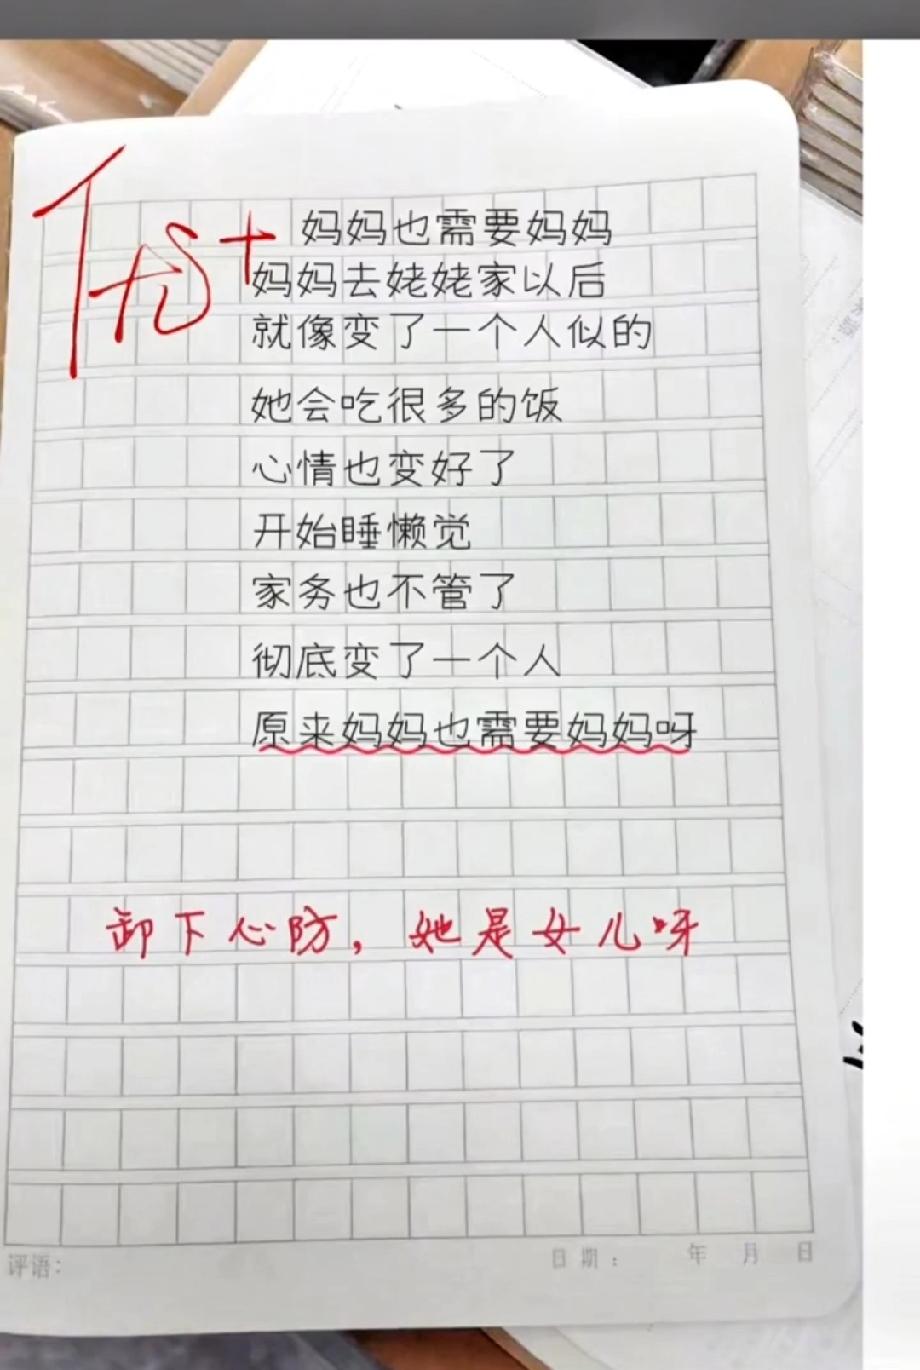 优+
妈妈也需要妈妈
妈妈去姥姥家以后
就像变了一个人似的
她会吃很多的饭
心情也变好了
开始睡懒觉
家务也不管了
彻底变了一个人
原来妈妈也需要妈妈呀
卸下心防，她是女儿呀
评语：
日期： 年 月 日